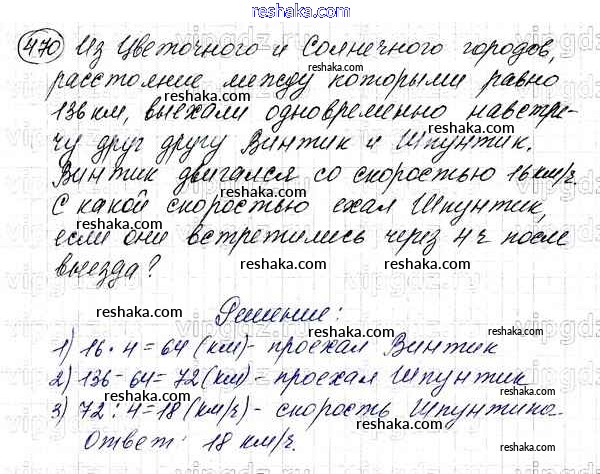 reshaka.com
470 Из Цветочного и Солнечного городов,
reshaka.com
расстояние между которыми равно
136 км, выехали одновременно навстре-
reshaka.com
чу друг другу Винтик и Шпунтик.
reshaka.com
Винтик двигался со скоростью 16 км/ч.
reshaka.com
С какой скоростью ехал Шпунтик,
reshaka.com
если они встретились через 4 ч после
reshaka.com
выезда?
reshaka.com
Решение:
reshaka.com
1) 16 · 4 = 64 (км) - проехал Винтик
reshaka.com
2) 136 - 64 = 72 (км) - проехал Шпунтик
reshaka.com
3) 72 : 4 = 18 (км/ч) - скорость Шпунтика.
reshaka.com
Ответ: 18 км/ч.
reshaka.com